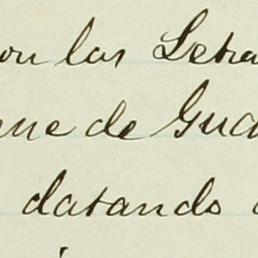 con las Letra
ene de Gua
datando